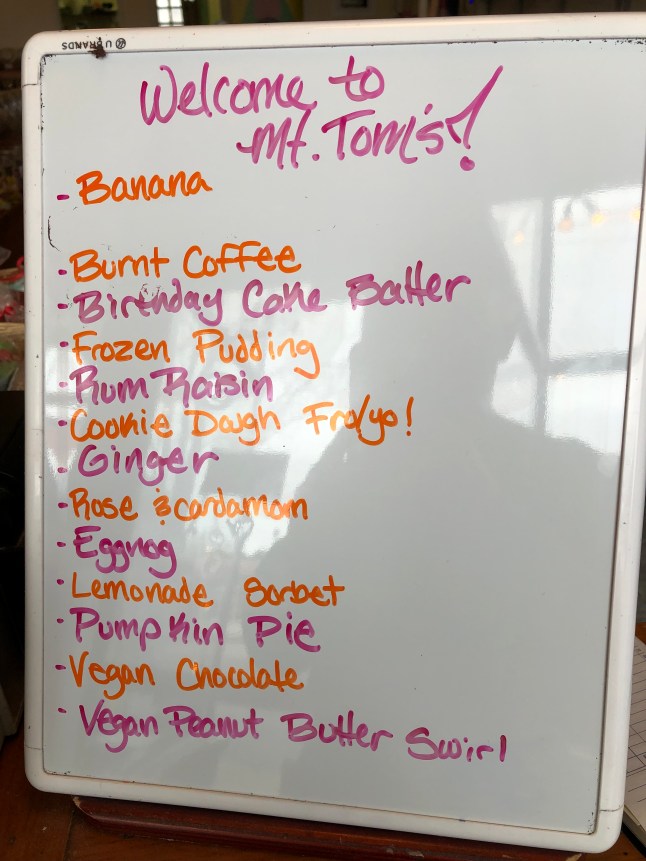 U BRANDS
Welcome to
Mt. Tom's!
- Banana
- Burnt Coffee
- Birthday Cake Batter
- Frozen Pudding
- Rum Raisin
- Cookie Dough Fro/yo!
- Ginger
- Rose & cardamom
- Eggnog
- Lemonade Sorbet
- Pumpkin Pie
- Vegan Chocolate
- Vegan Peanut Butter Swirl